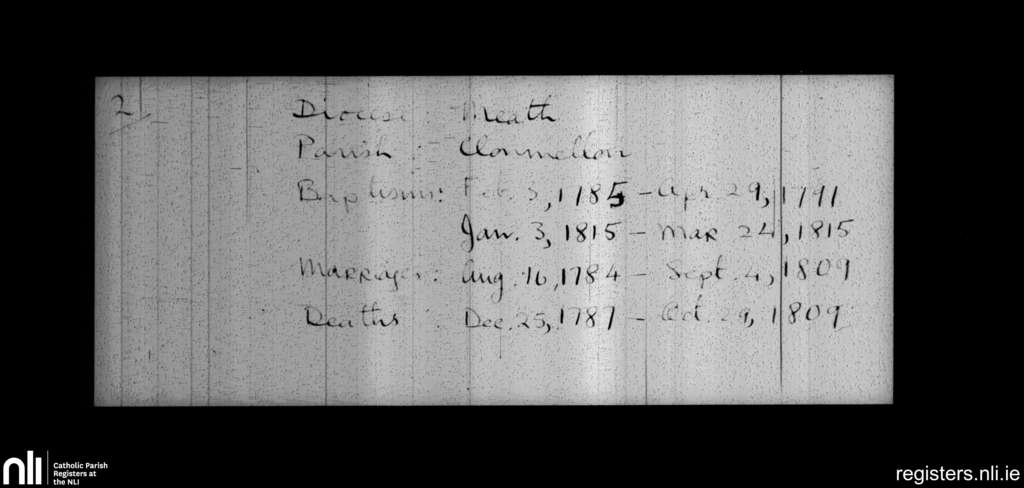 2
Diocese : Meath
Parish : Clonmellon
Baptisms: Feb. 3, 1785 – Apr 29, 1791
Jan. 3, 1815 – Mar 24, 1815
Marriages: Aug. 16, 1784 – Sept. 4, 1809
Deaths : Dec. 25, 1787 – Oct. 29, 1809
nli
Catholic Parish
Registers at
the NLI
registers.nli.ie